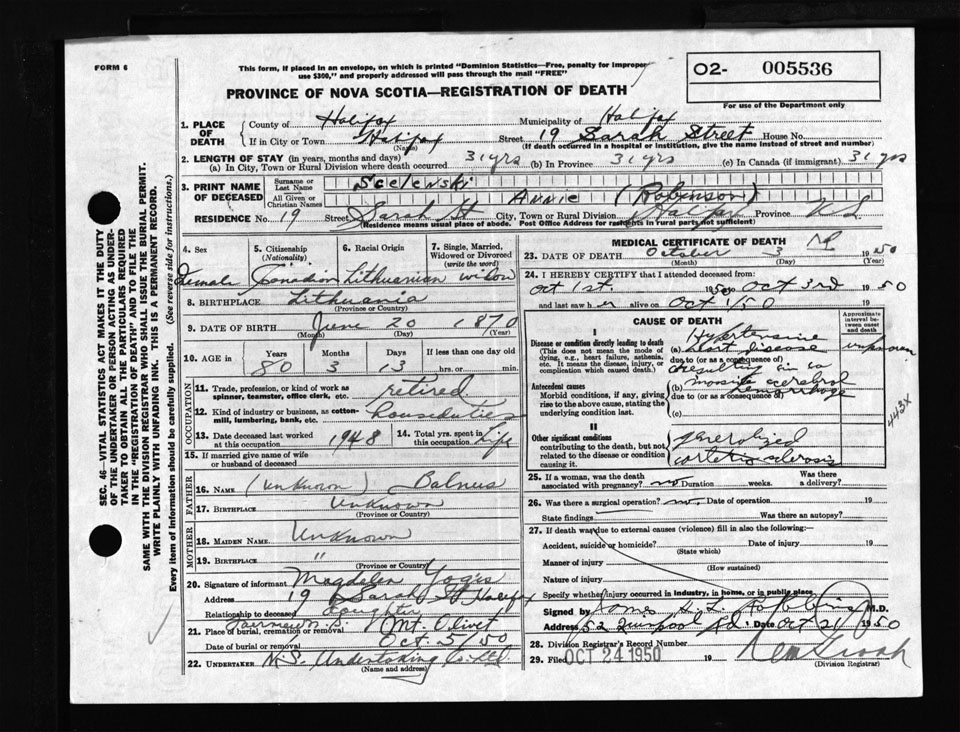 FORM 6
This form, if placed in an envelope, on which is printed "Dominion Statistics—Free, penalty for improper
use $300," and properly addressed will pass through the mail "FREE"
O2- 005536
For use of the Department only
PROVINCE OF NOVA SCOTIA—REGISTRATION OF DEATH
1. PLACE OF DEATH
County of Halifax Municipality of Halifax
If in City or Town Halifax Street 19 Sarah Street House No.
(Name) (If death occurred in a hospital or institution, give the name instead of street and number)
2. LENGTH OF STAY (in years, months and days)
(a) In City, Town or Rural Division where death occurred 31 yrs (b) In Province 31 yrs (c) In Canada (if immigrant) 31 yrs
3. PRINT NAME OF DECEASED
Surname or Last Name
All Given or Christian Names Annie (Robinson)
RESIDENCE No. 19 Street Sarah St City, Town or Rural Division Halifax Province N.S.
(Residence means usual place of abode. Post Office Address for residents in rural parts not sufficient)
4. Sex 5. Citizenship (Nationality) 6. Racial Origin 7. Single, Married, Widowed or Divorced (write the word)
Female Canadian Lithuanian widow
8. BIRTHPLACE Lithuania
(Province or Country)
9. DATE OF BIRTH June 20 1870
(Month) (Day) (Year)
10. AGE in Years Months Days If less than one day old
80 3 13 hrs. or min.
OCCUPATION
11. Trade, profession, or kind of work as spinner, teamster, office clerk, etc. retired
12. Kind of industry or business, as cotton-mill, lumbering, bank, etc. Houseduties
13. Date deceased last worked at this occupation 1948 14. Total yrs. spent in this occupation Life
15. If married give name of wife or husband of deceased
FATHER
16. NAME (unknown) Balnus
17. BIRTHPLACE Unknown
(Province or Country)
MOTHER
18. MAIDEN NAME Unknown
19. BIRTHPLACE "
(Province or Country)
20. Signature of informant Magdalen Yogis
Address 19 Sarah St Halifax
Relationship to deceased Daughter
21. Place of burial, cremation or removal Fairview N.S. Mt. Olivet
Date of burial or removal Oct. 5/50
22. UNDERTAKER N.S. Undertaking Co. Ltd.
(Name and address)
MEDICAL CERTIFICATE OF DEATH
23. DATE OF DEATH October 3 1950
(Month) (Day) (Year)
24. I HEREBY CERTIFY that I attended deceased from:
Oct 1st. 1950 to Oct 3rd 1950
and last saw her alive on Oct 1/50
CAUSE OF DEATH
Approximate interval between onset and death
I
Disease or condition directly leading to death
(This does not mean the mode of dying, e.g., heart failure, asthenia, etc. It means the disease, injury, or complication which caused death.)
(a) Hypertensive heart disease unknown
due to (or as a consequence of)
resulting in a
Antecedent causes
Morbid conditions, if any, giving rise to the above cause, stating the underlying condition last.
(b) massive cerebral hemorrhage
due to (or as a consequence of)
(c)
443X
II
Other significant conditions
contributing to the death, but not related to the disease or condition causing it.
generalized
arterio sclerosis
25. If a woman, was the death associated with pregnancy? no Duration weeks. Was there a delivery?
26. Was there a surgical operation? no. Date of operation 19
State findings Was there an autopsy?
27. If death was due to external causes (violence) fill in also the following:
Accident, suicide or homicide? Date of injury 19
(State which)
Manner of injury
(How sustained)
Nature of injury
Specify whether injury occurred in industry, in home, or in public place
Signed by M.D.
Address Date Oct 1950
28. Division Registrar's Record Number
29. Filed OCT 24 1950 19
(Division Registrar)
SEC. 46 VITAL STATISTICS ACT MAKES IT THE DUTY
OF THE UNDERTAKER OR PERSON ACTING AS UNDER-
TAKER TO OBTAIN ALL THE PARTICULARS REQUIRED
IN THE "REGISTRATION OF DEATH" AND TO FILE THE
SAME WITH THE DIVISION REGISTRAR WHO SHALL ISSUE THE BURIAL PERMIT.
WRITE PLAINLY WITH UNFADING INK. THIS IS A PERMANENT RECORD.
Every item of information should be carefully supplied. (See reverse side for instructions.)